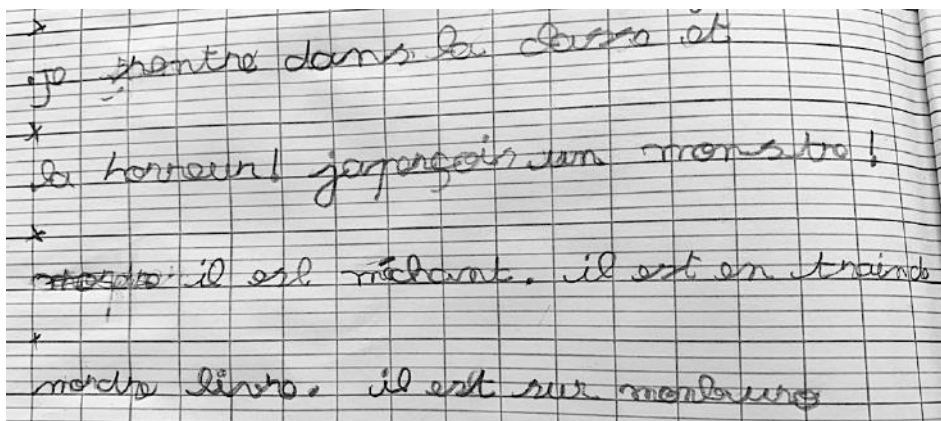 je rentre dans la classe et
la horreur! japerçois un monstre!
il est méchant. il est en trainde
mordre livre. il est sur monbureo